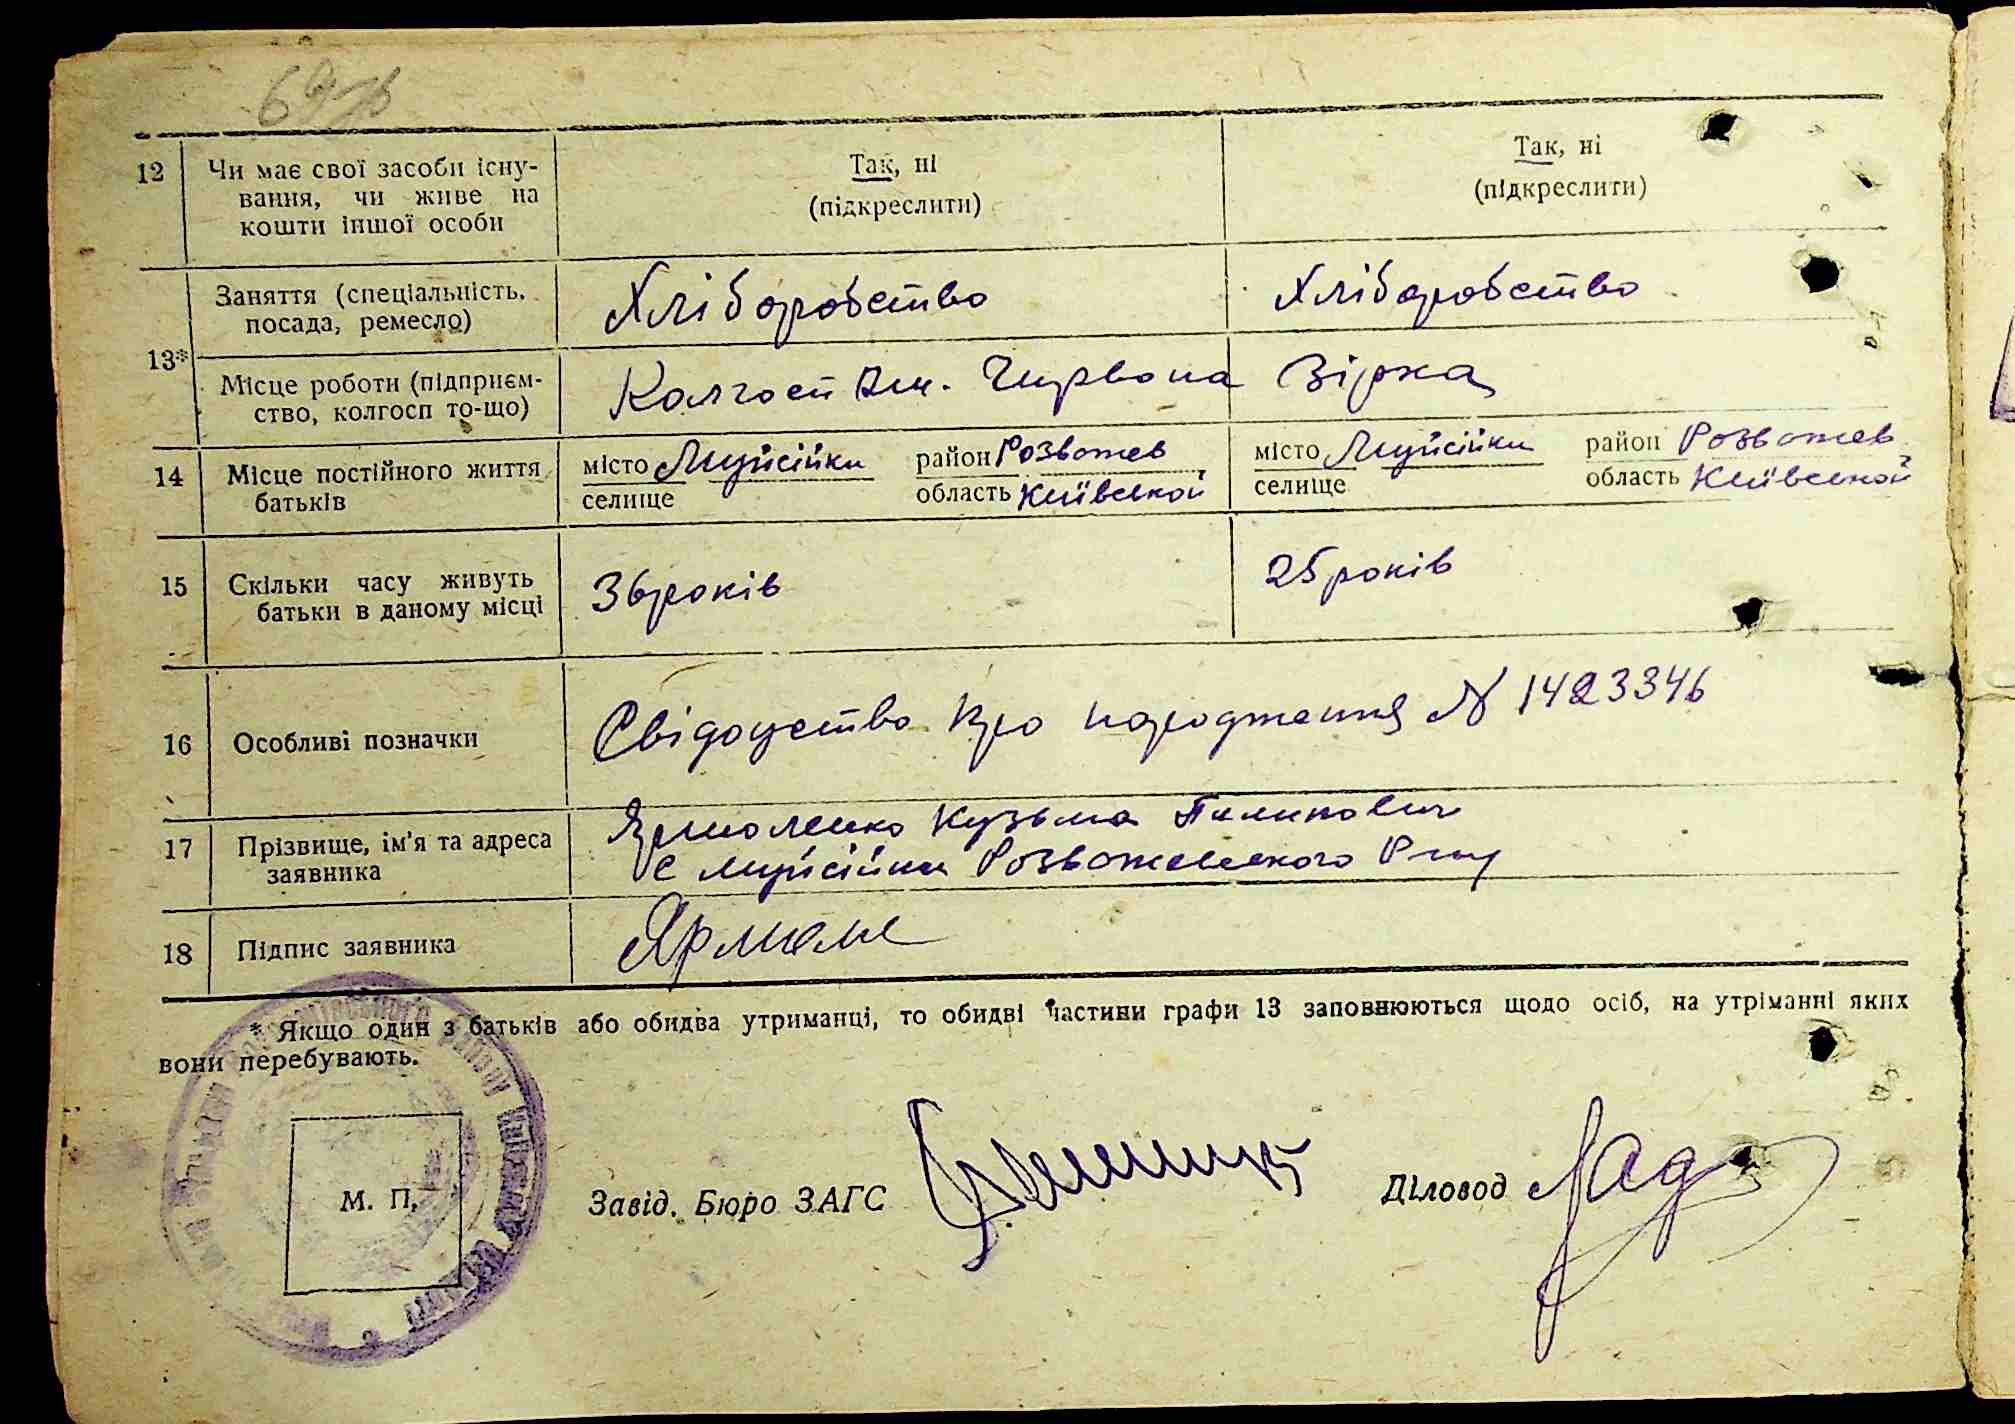 69зв
12 Чи має свої засоби існу-
вання, чи живе на
кошти іншої особи
Так, ні
(підкреслити)
Так, ні
(підкреслити)
13*
Заняття (спеціальність,
посада, ремесло)
Хліборобство
Хліборобство
Місце роботи (підприєм-
ство, колгосп то-що)
Колгосп Ім. Червона Зірка
14 Місце постійного життя
батьків
місто Мусійки район Розважев
селище область Київської
місто Мусійки район Розважев
селище область Київської
15 Скільки часу живуть
батьки в даному місці
36 років
25 років
16 Особливі позначки
Свідоцтво про народження № 1423346
17 Прізвище, ім'я та адреса
заявника
Ярмоленко Кузьма Пилипович
с Мусійки Розважевського Р-ну
18 Підпис заявника
Ярмоле
* Якщо один з батьків або обидва утриманці, то обидві частини графи 13 заповнюються щодо осіб, на утріманні яких
вони перебувають.
М. П.
Завід. Бюро ЗАГС
Діловод